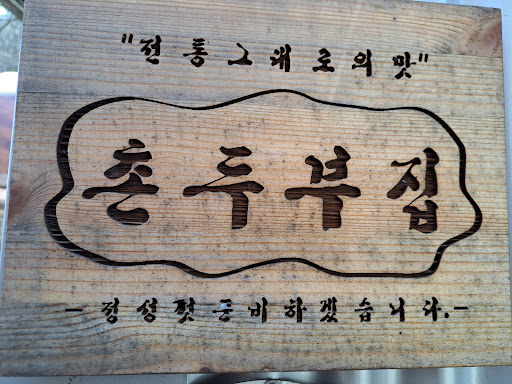 "전통그대로의맛"
촌두부집
- 정성껏준비하겠습니다.-